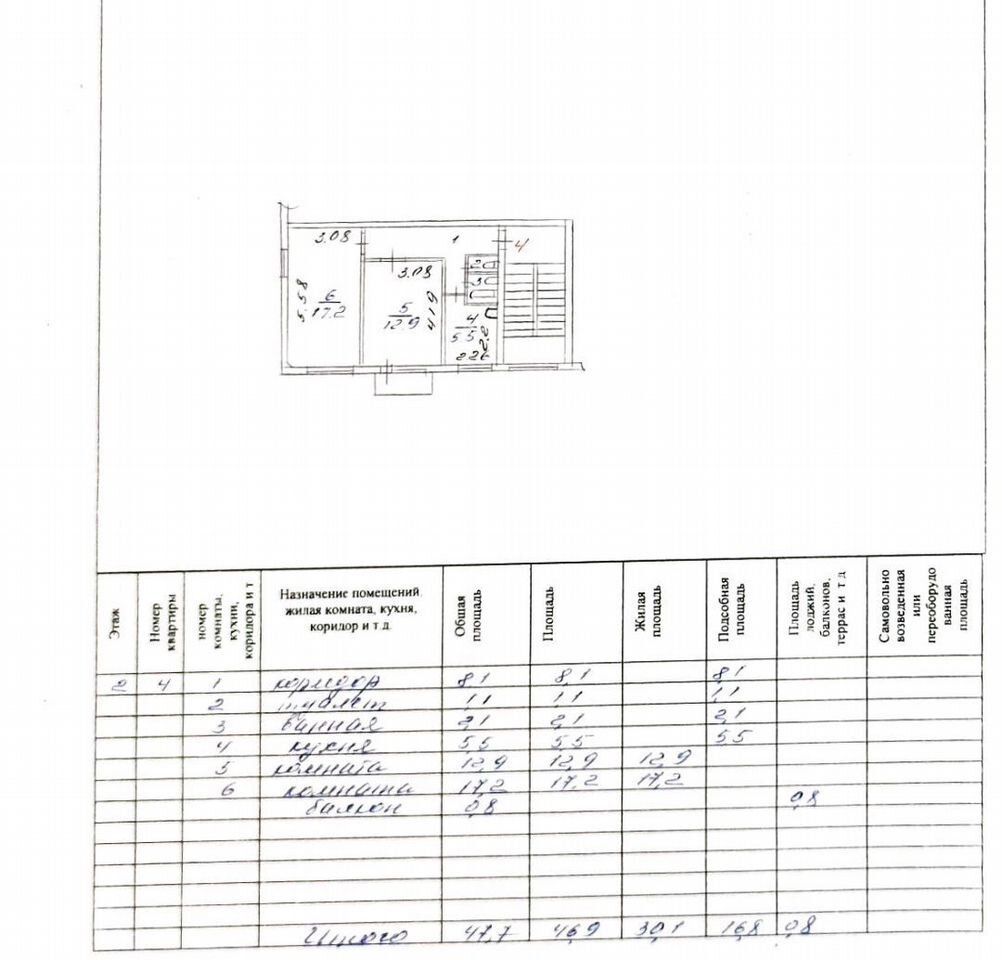 3.08 1 4
2
3.08 3
5.58 6 17.2 5 12.9 4.19 4 5.5 2.2
2.26
Этаж
Номер квартиры
номер комнаты, кухни, коридора и т
Назначение помещений жилая комната, кухня, коридор и т д
Общая площадь
Площадь
Жилая площадь
Подсобная площадь
Площадь лоджий, балконов, террас и т д
Самовольно возведенная или переоборудо ванная площадь
2 4 1 коридор 8,1 8,1 8,1
2 туалет 1,1 1,1 1,1
3 ванная 2,1 2,1 2,1
4 кухня 5,5 5,5 5,5
5 комната 12,9 12,9 12,9
6 комната 17,2 17,2 17,2
балкон 0,8 0,8
Итого 47,7 46,9 30,1 16,8 0,8